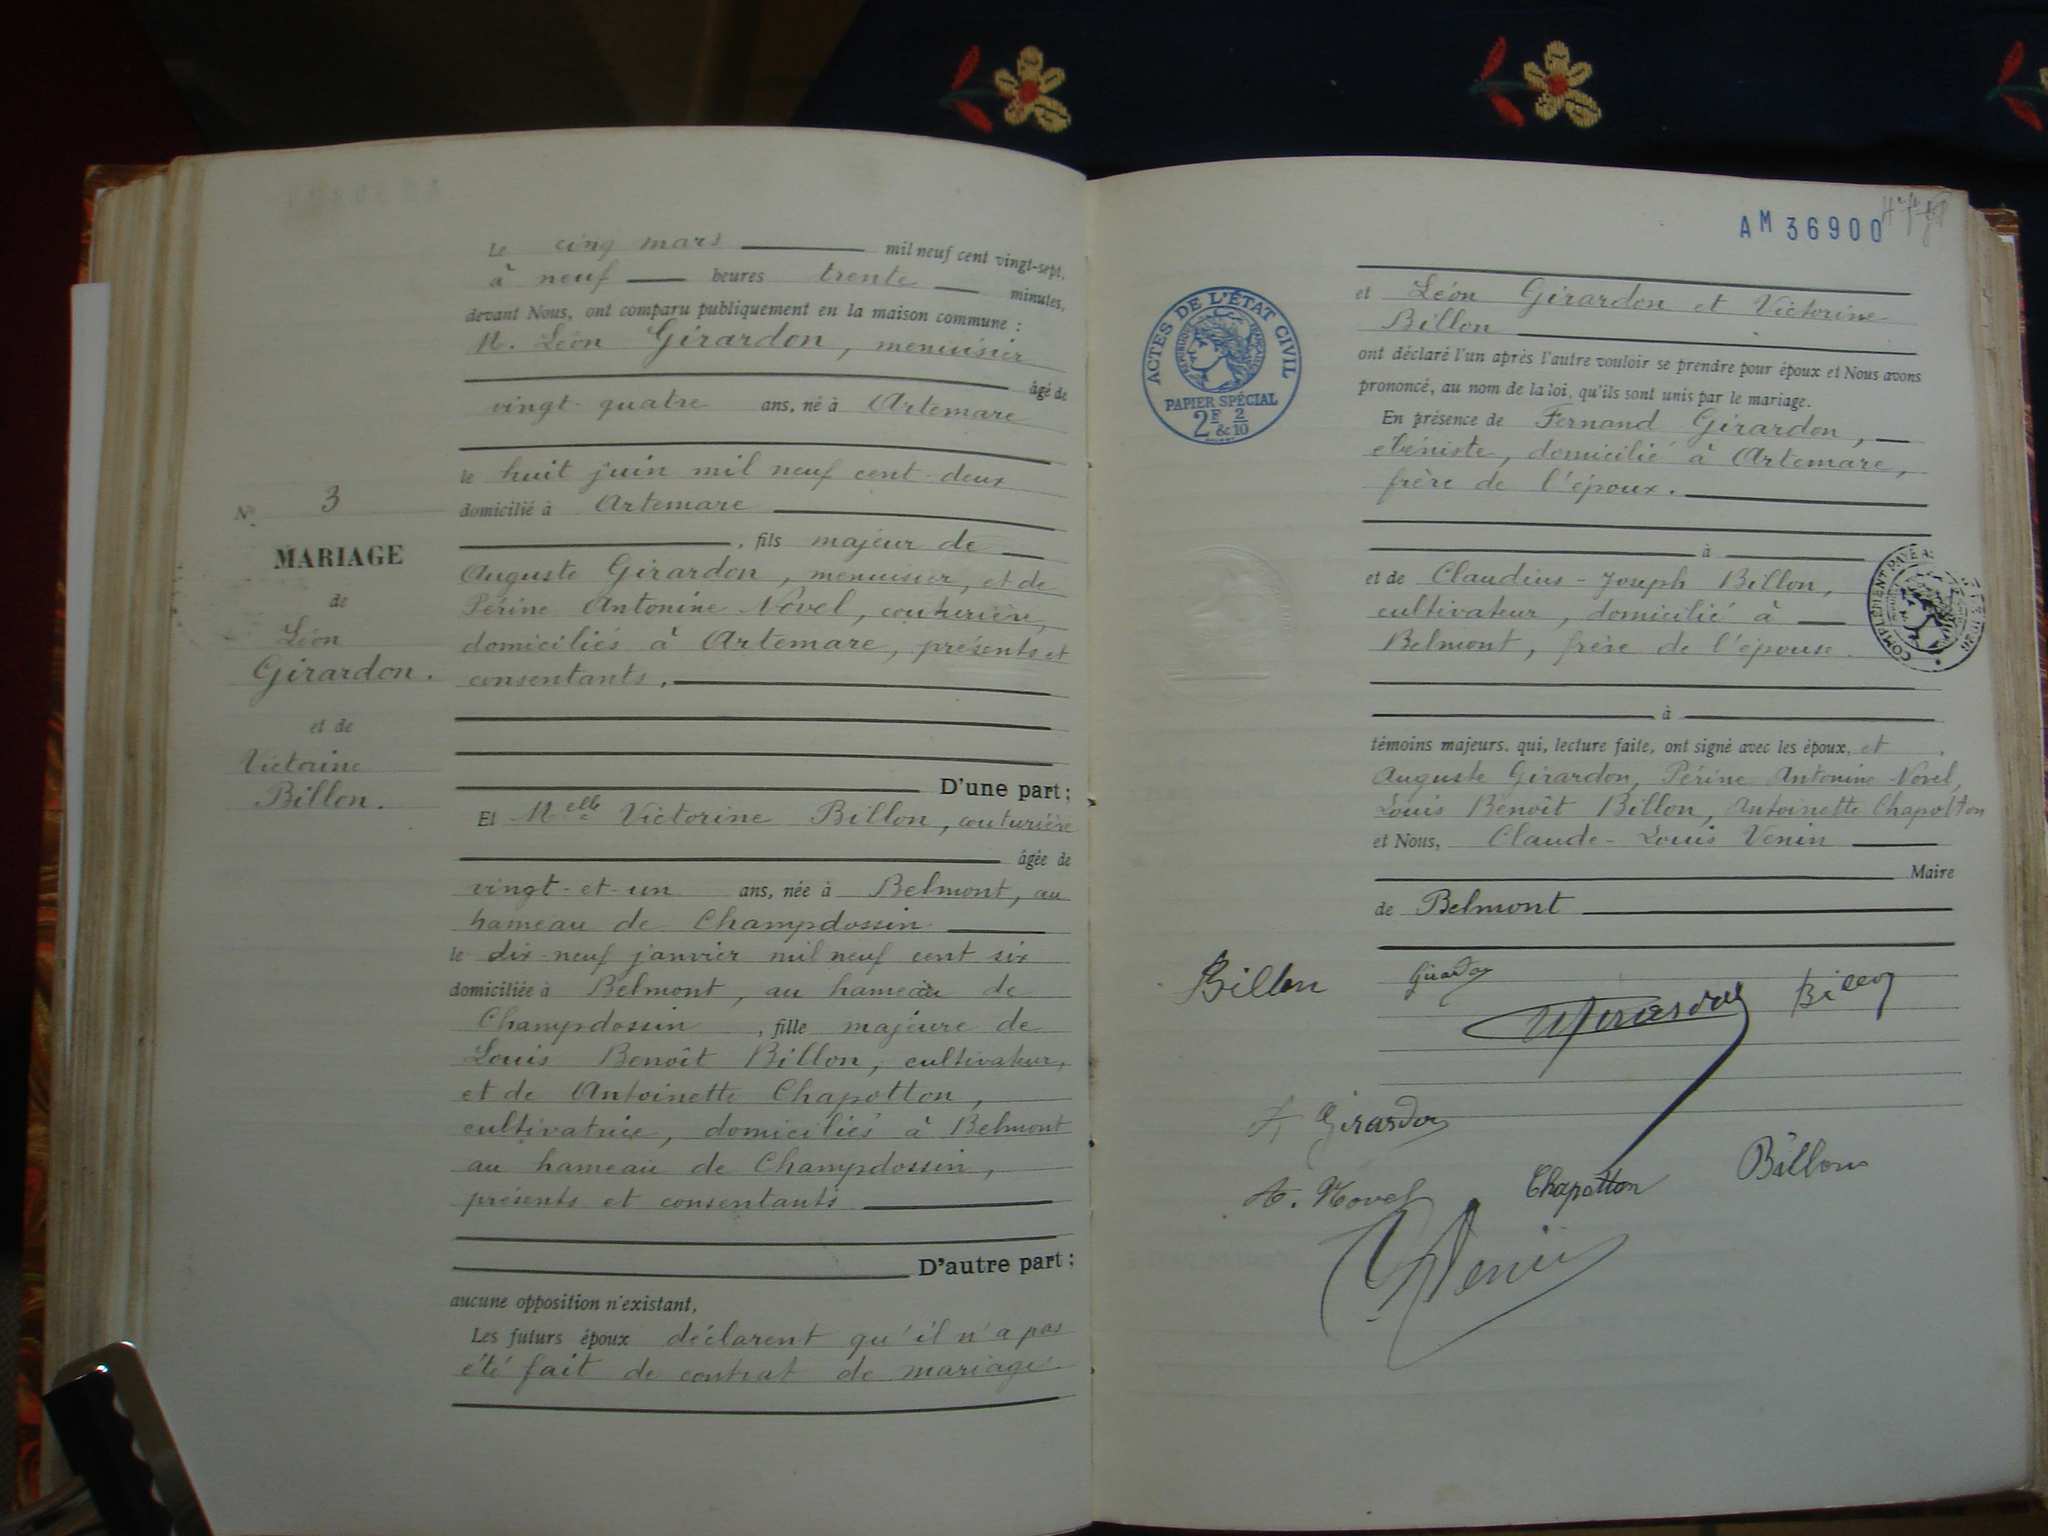 N° 3
MARIAGE
de
Léon
Girardon.
et de
Victorine
Billon.
Le cinq mars mil neuf cent vingt-sept,
à neuf heures trente minutes,
devant Nous, ont comparu publiquement en la maison commune :
M. Léon Girardon, menuisier
âgé de
vingt-quatre ans, né à Artemare
le huit juin mil neuf cent-deux
domicilié à Artemare
, fils majeur de
Auguste Girardon, menuisier, et de
Périne Antonine Novel, couturière,
domiciliés à Artemare, présents et
consentants,
D'une part ;
Et Melle Victorine Billon, couturière
âgée de
vingt-et-un ans, née à Belmont, au
hameau de Champdossin
le dix-neuf janvier mil neuf cent six
domiciliée à Belmont, au hameau de
Champdossin, fille majeure de
Louis Benoît Billon, cultivateur,
et de Antoinette Chapotton,
cultivatrice, domiciliés à Belmont
au hameau de Champdossin,
présents et consentants
D'autre part ;
aucune opposition n'existant,
Les futurs époux déclarent qu'il n'a pas
été fait de contrat de mariage
AM 36900
ACTES DE L'ÉTAT CIVIL
RÉPUBLIQUE FRANÇAISE
PAPIER SPÉCIAL
2F & 2/10
et Léon Girardon et Victorine
Billon
ont déclaré l'un après l'autre vouloir se prendre pour époux et Nous avons
prononcé, au nom de la loi, qu'ils sont unis par le mariage.
En présence de Fernand Girardon,
ébéniste, domicilié à Artemare,
frère de l'époux.
à
et de Claudius-Joseph Billon,
cultivateur, domicilié à
Belmont, frère de l'épouse
COMPLÉMENT PAYÉ
à
témoins majeurs, qui, lecture faite, ont signé avec les époux, et
Auguste Girardon, Périne Antonine Novel,
Louis Benoît Billon, Antoinette Chapotton
et Nous, Claude-Louis Venin
Maire
de Belmont
Billon Girardon Girardon Billon
A Girardon
A. Novel Chapotton Billon
Venin